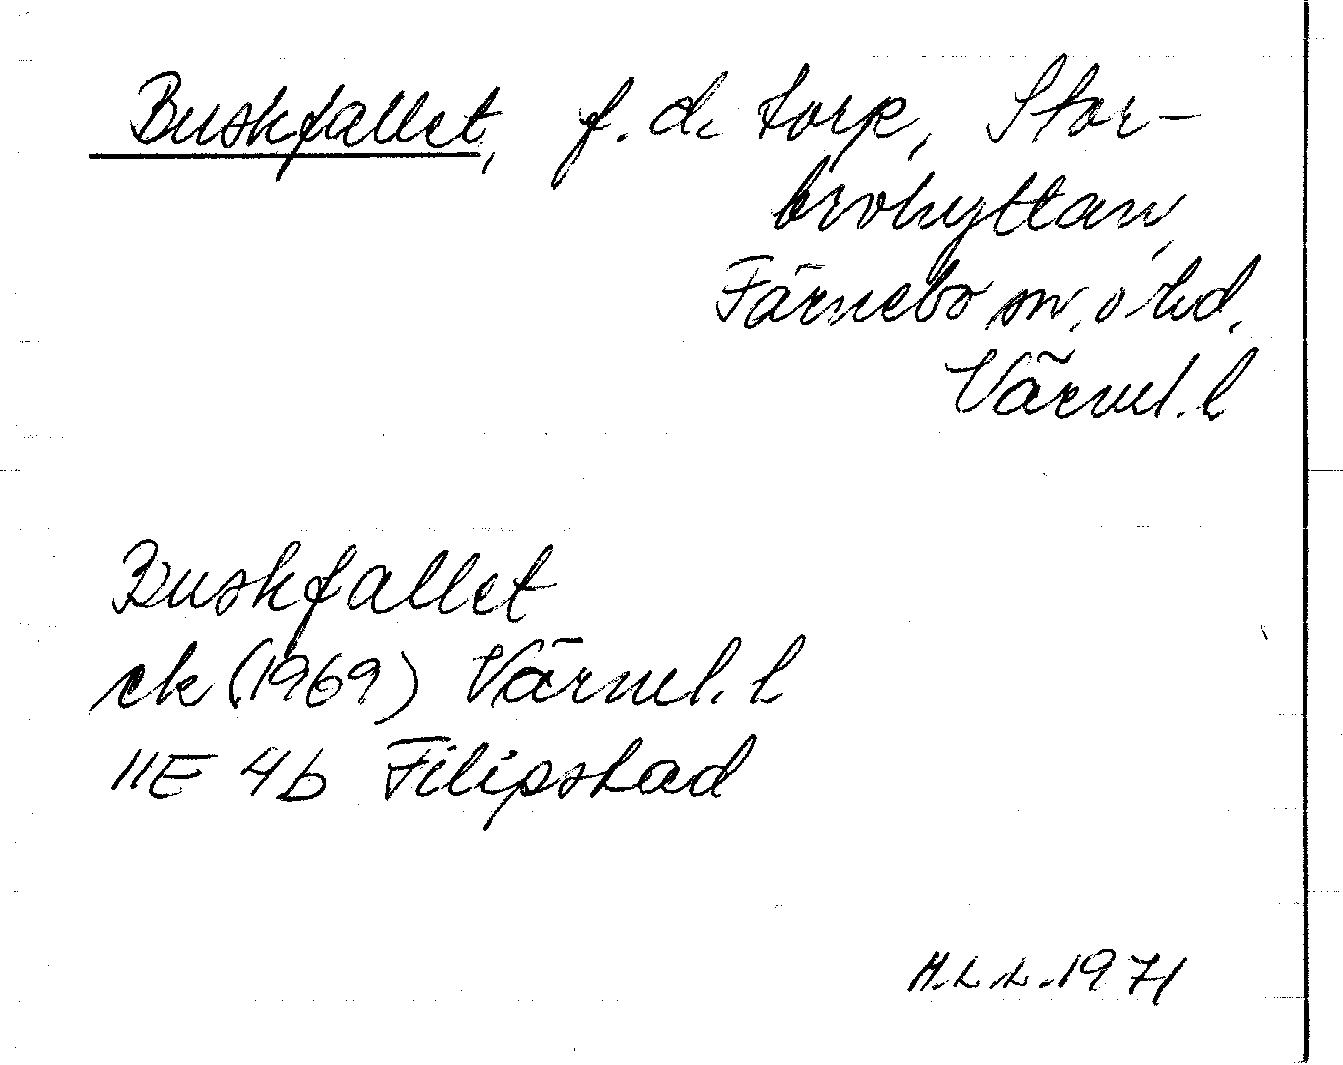 Buskfallet, f.d. torp, Stor-
brohyttan,
Färnebo sn. o hd.
Värml. l
Buskfallet
ek (1969) Värml. l
11E 4b Filipstad
M.L.L. 1971